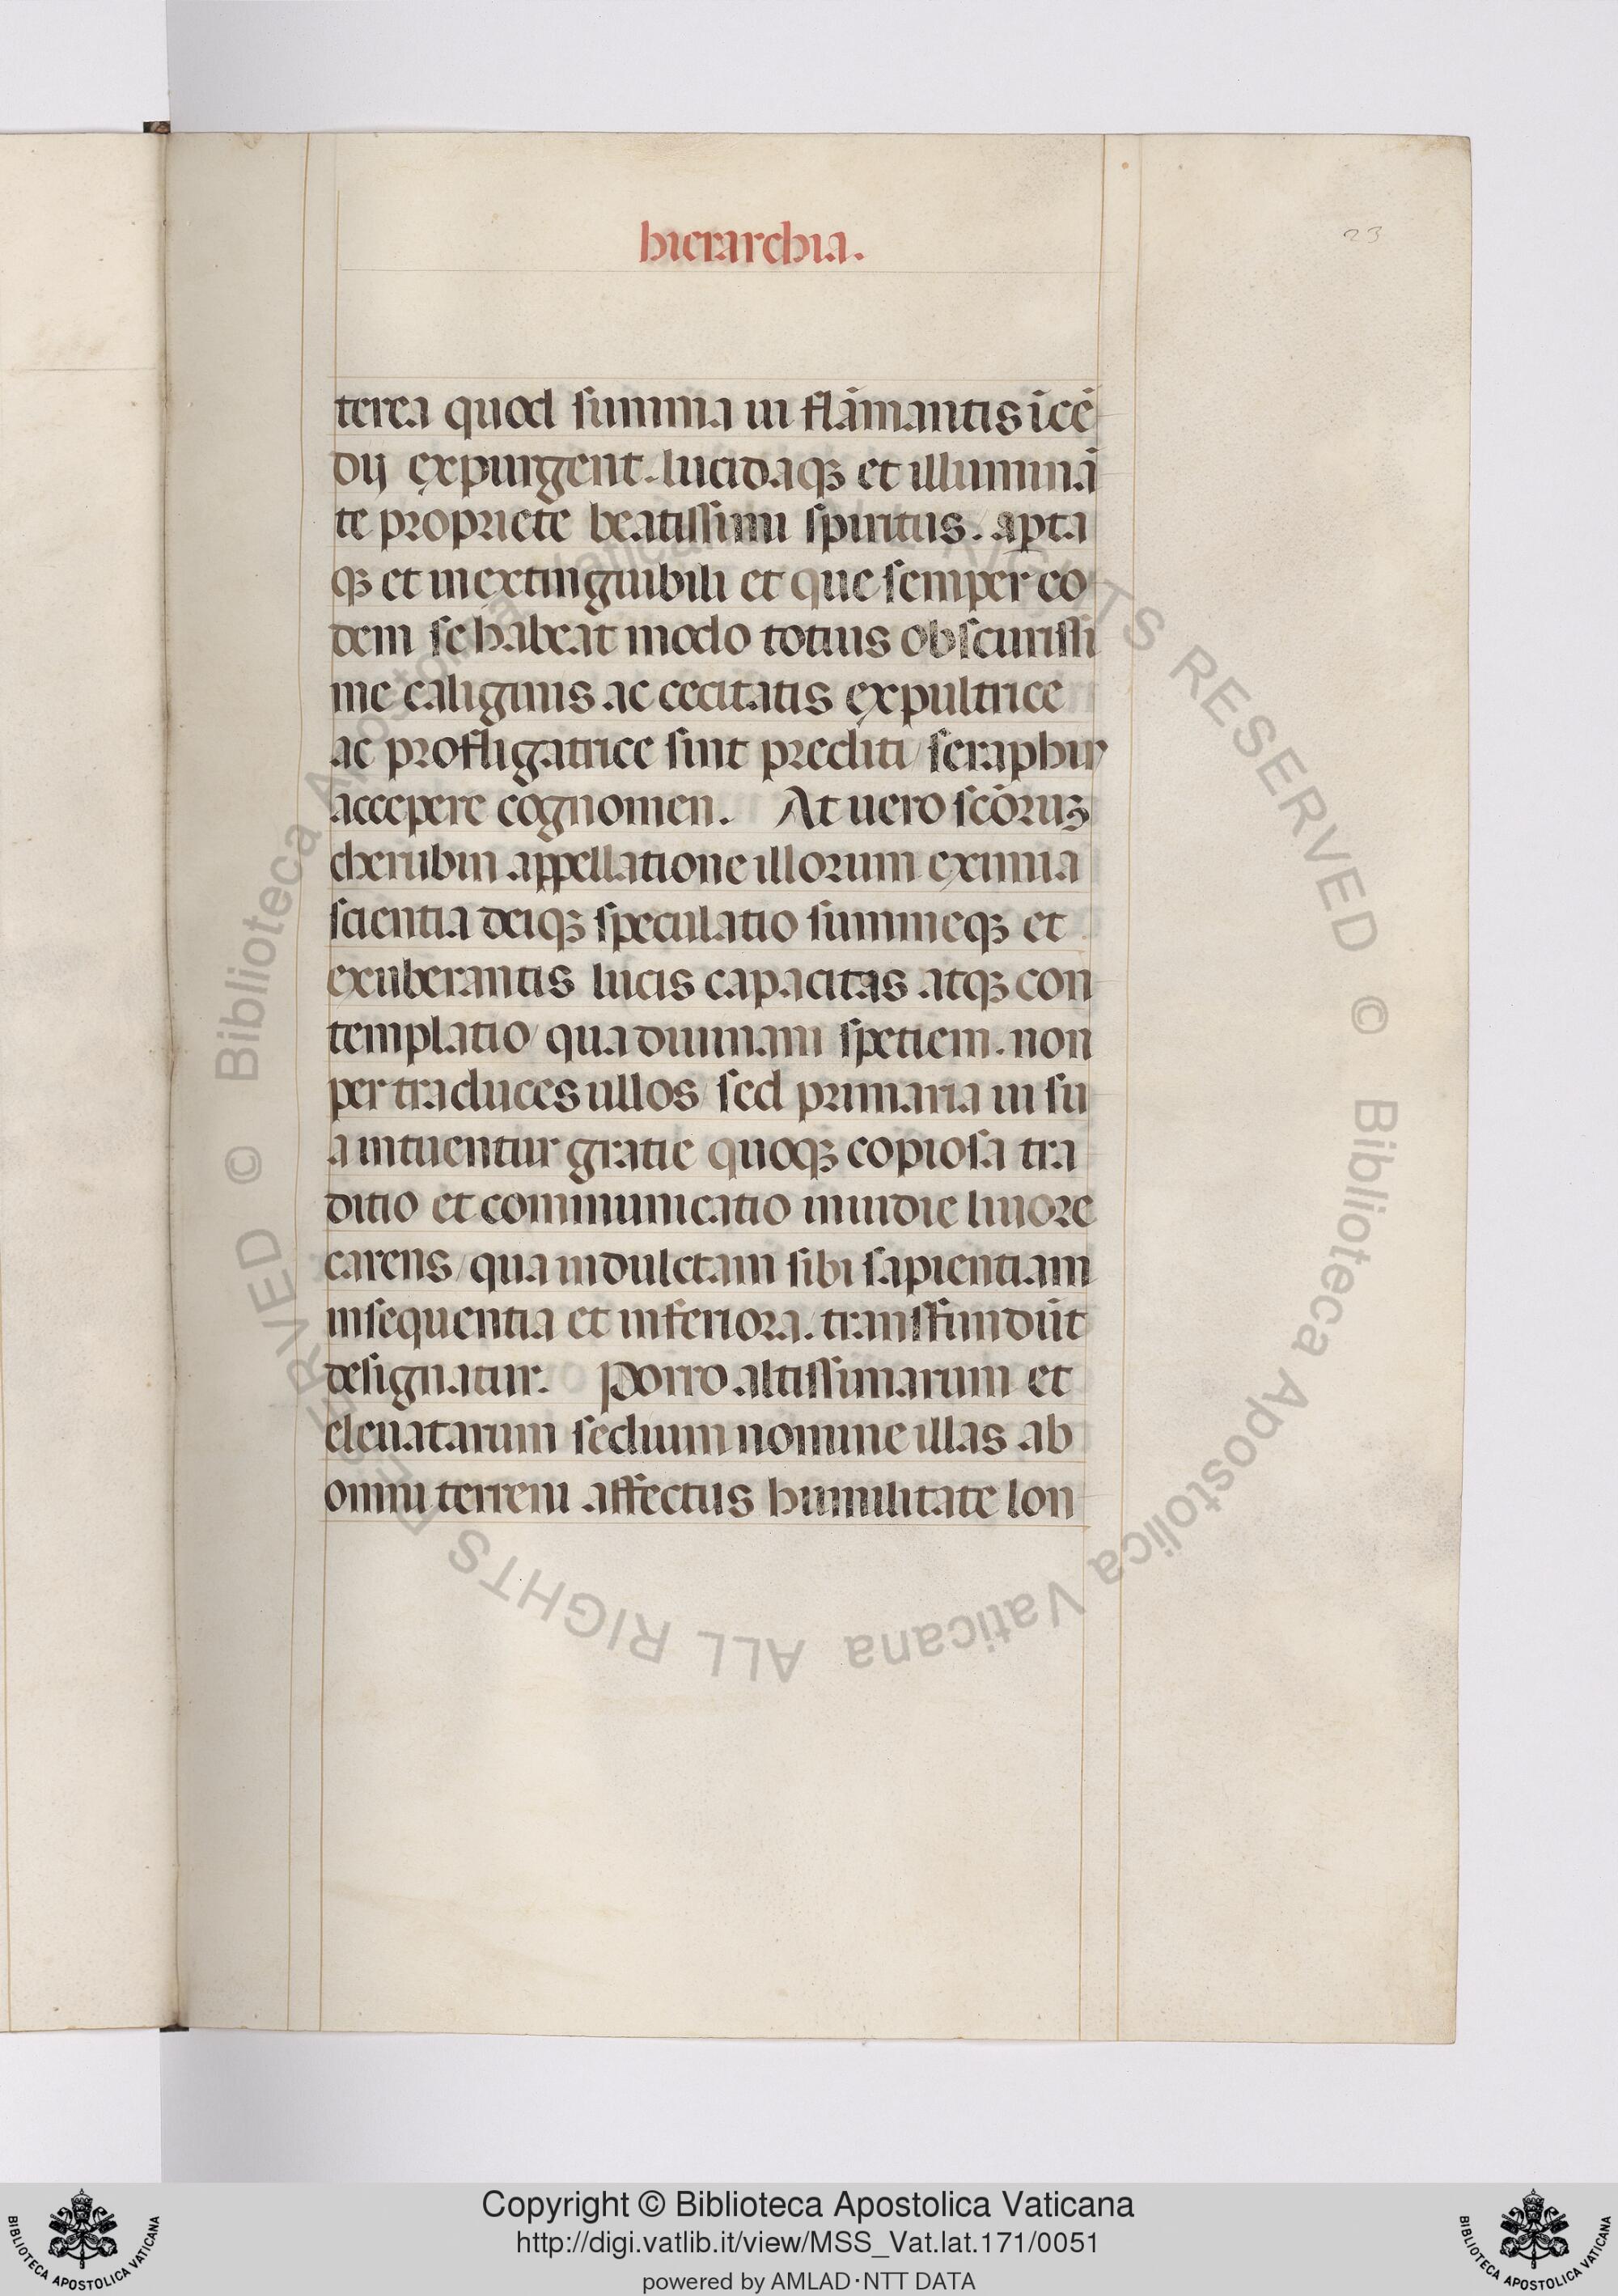 hierarchia.
23
terea quod summa in flāmantis īcē
dij expurgent. lucidaqꝫ et illuminā
te propriete beatissimi spiritus. apta
qꝫ et inextinguibili et que semper eo
dem se habeat modo totius obscurissi
me caliginis ac cecitatis expultrice
ac profligatrice sint prediti / seraphin
accepere cognomen. At uero scōruꝫ
cherubin appellatione illorum eximia
scientia deiqꝫ speculatio summeqꝫ et
exuberantis lucis capacitas atqꝫ con
templatio / qua diuinam spetiem. non
per traduces ullos / sed primaria in su
a intuentur gratie quoqꝫ copiosa tra
ditio et communicatio inuidie liuore
carens / qua indulctam sibi sapientiam
insequentia et inferiora. transfundūt
designatur. Porro altissimarum et
eleuatarum sedium nomine illas ab
omni terreni affectus humilitate lon
© Biblioteca Apostolica Vaticana ALL RIGHTS RESERVED © Biblioteca Apostolica Vaticana ALL RIGHTS RESERVED
Copyright © Biblioteca Apostolica Vaticana
http://digi.vatlib.it/view/MSS_Vat.lat.171/0051
powered by AMLAD·NTT DATA
BIBLIOTECA APOSTOLICA VATICANA
BIBLIOTECA APOSTOLICA VATICANA